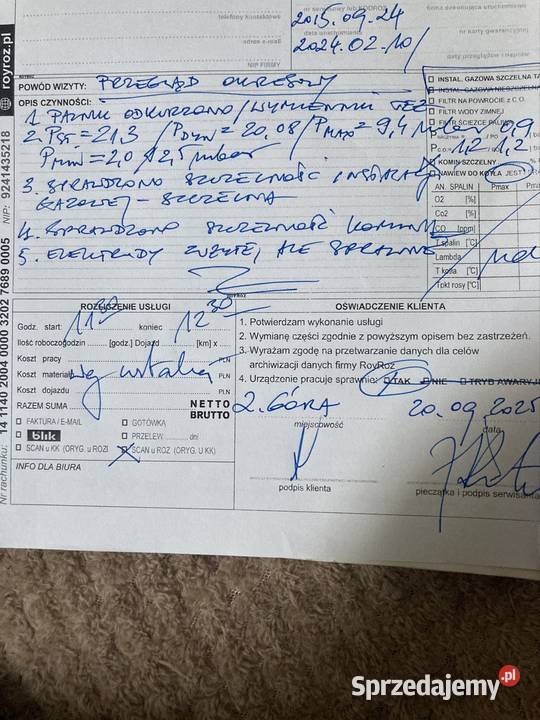 telefony kontaktowe
adres e-mail
NIP FIRMY
nr seryjny kotła
firma dokonująca uruchomienia
2015.09.24
data uruchomienia
nr karty gwarancyjnej
2024.02.10/
daty przeglądów i napraw
royroz.pl
NIP: 9241435218
Nr rachunku: 14 1140 2004 0000 3202 7689 0005
POWÓD WIZYTY: PRZEGLĄD OKRESOWY
OPIS CZYNNOŚCI:
1. PALNIK ODKURZONO/WYMIENNIK TEŻ
2. Pst = 21,3 / Pdyn = 20,08 / Pmax = 9,4 mbar
Pmin = 2,0 / 2,5 mbar
3. SPRAWDZONO SZCZELNOŚĆ INSTALACJI
GAZOWEJ – SZCZELNA
4. SPRAWDZONO SZCZELNOŚĆ KOMINA
5. ELEKTRODY ZUŻYTE, ALE SPRAWNE
INSTAL. GAZOWA SZCZELNA
INSTAL. GAZOWA NIESZCZELNA
FILTR NA POWROCIE z C.O.
FILTR WODY ZIMNEJ
FILTR ŚCIEŻCE PALIWA
P c.o. 1,2 1,2
KOMIN SZCZELNY
NAWIEW DO KOTŁA JEST
AN. SPALIN Pmax Pmin
O2 [%]
Co2 [%]
CO [ppm]
T spalin [°C]
Lambda
T kotła [°C]
T pkt rosy [°C]
ROZLICZENIE USŁUGI
Godz. start: 11 30 koniec 12 30
Ilość roboczogodzin [godz.] Dojazd [km] x
Koszt pracy PLN
Koszt materiału PLN
wg ustaleń
Koszt dojazdu PLN
RAZEM SUMA NETTO
BRUTTO
FAKTURA / E-MAIL GOTÓWKA
blik PRZELEW ... dni
SCAN u KK (ORYG. u ROZ) SCAN u ROZ (ORYG. U KK)
INFO DLA BIURA
OŚWIADCZENIE KLIENTA
1. Potwierdzam wykonanie usługi
2. Wymianę części zgodnie z powyższym opisem bez zastrzeżeń.
3. Wyrażam zgodę na przetwarzanie danych dla celów
archiwizacji danych firmy RoyRoz
4. Urządzenie pracuje sprawnie: TAK NIE TRYB AWARYJ
Z. GÓRA 20.09.2025
miejscowość data
podpis klienta pieczątka i podpis serwisanta
Sprzedajemy.pl